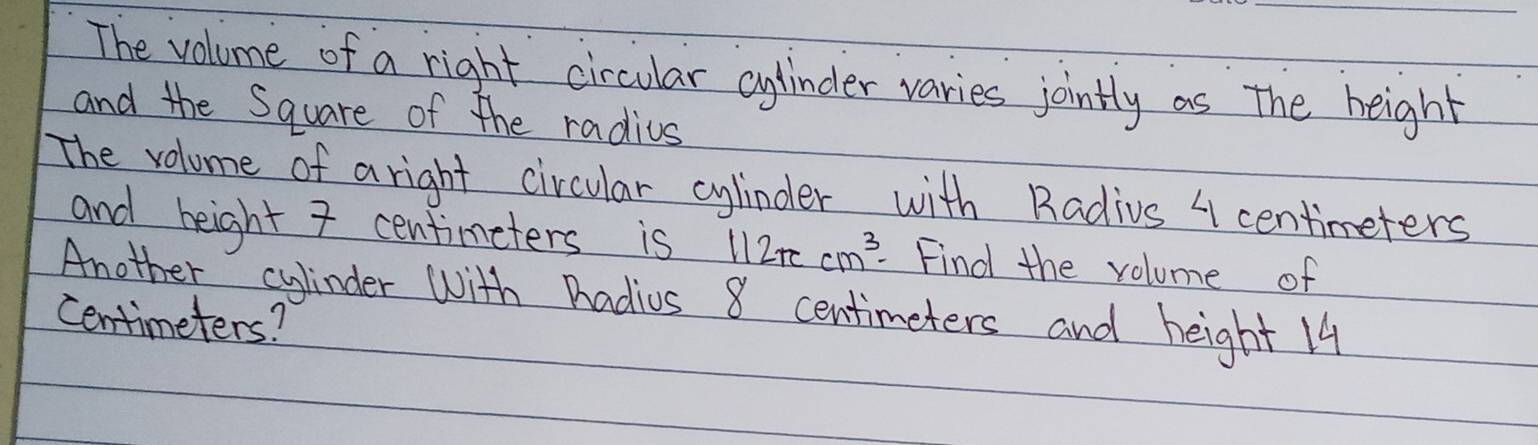 The volume of a right circular cylinder varies jointly as The height
and the Square of the radius
The volume of a right circular cylinder with Radius 4 centimeters
and height 7 centimeters is 112π cm³. Find the volume of
Another cylinder With Radius 8 centimeters and height 14
Centimeters?